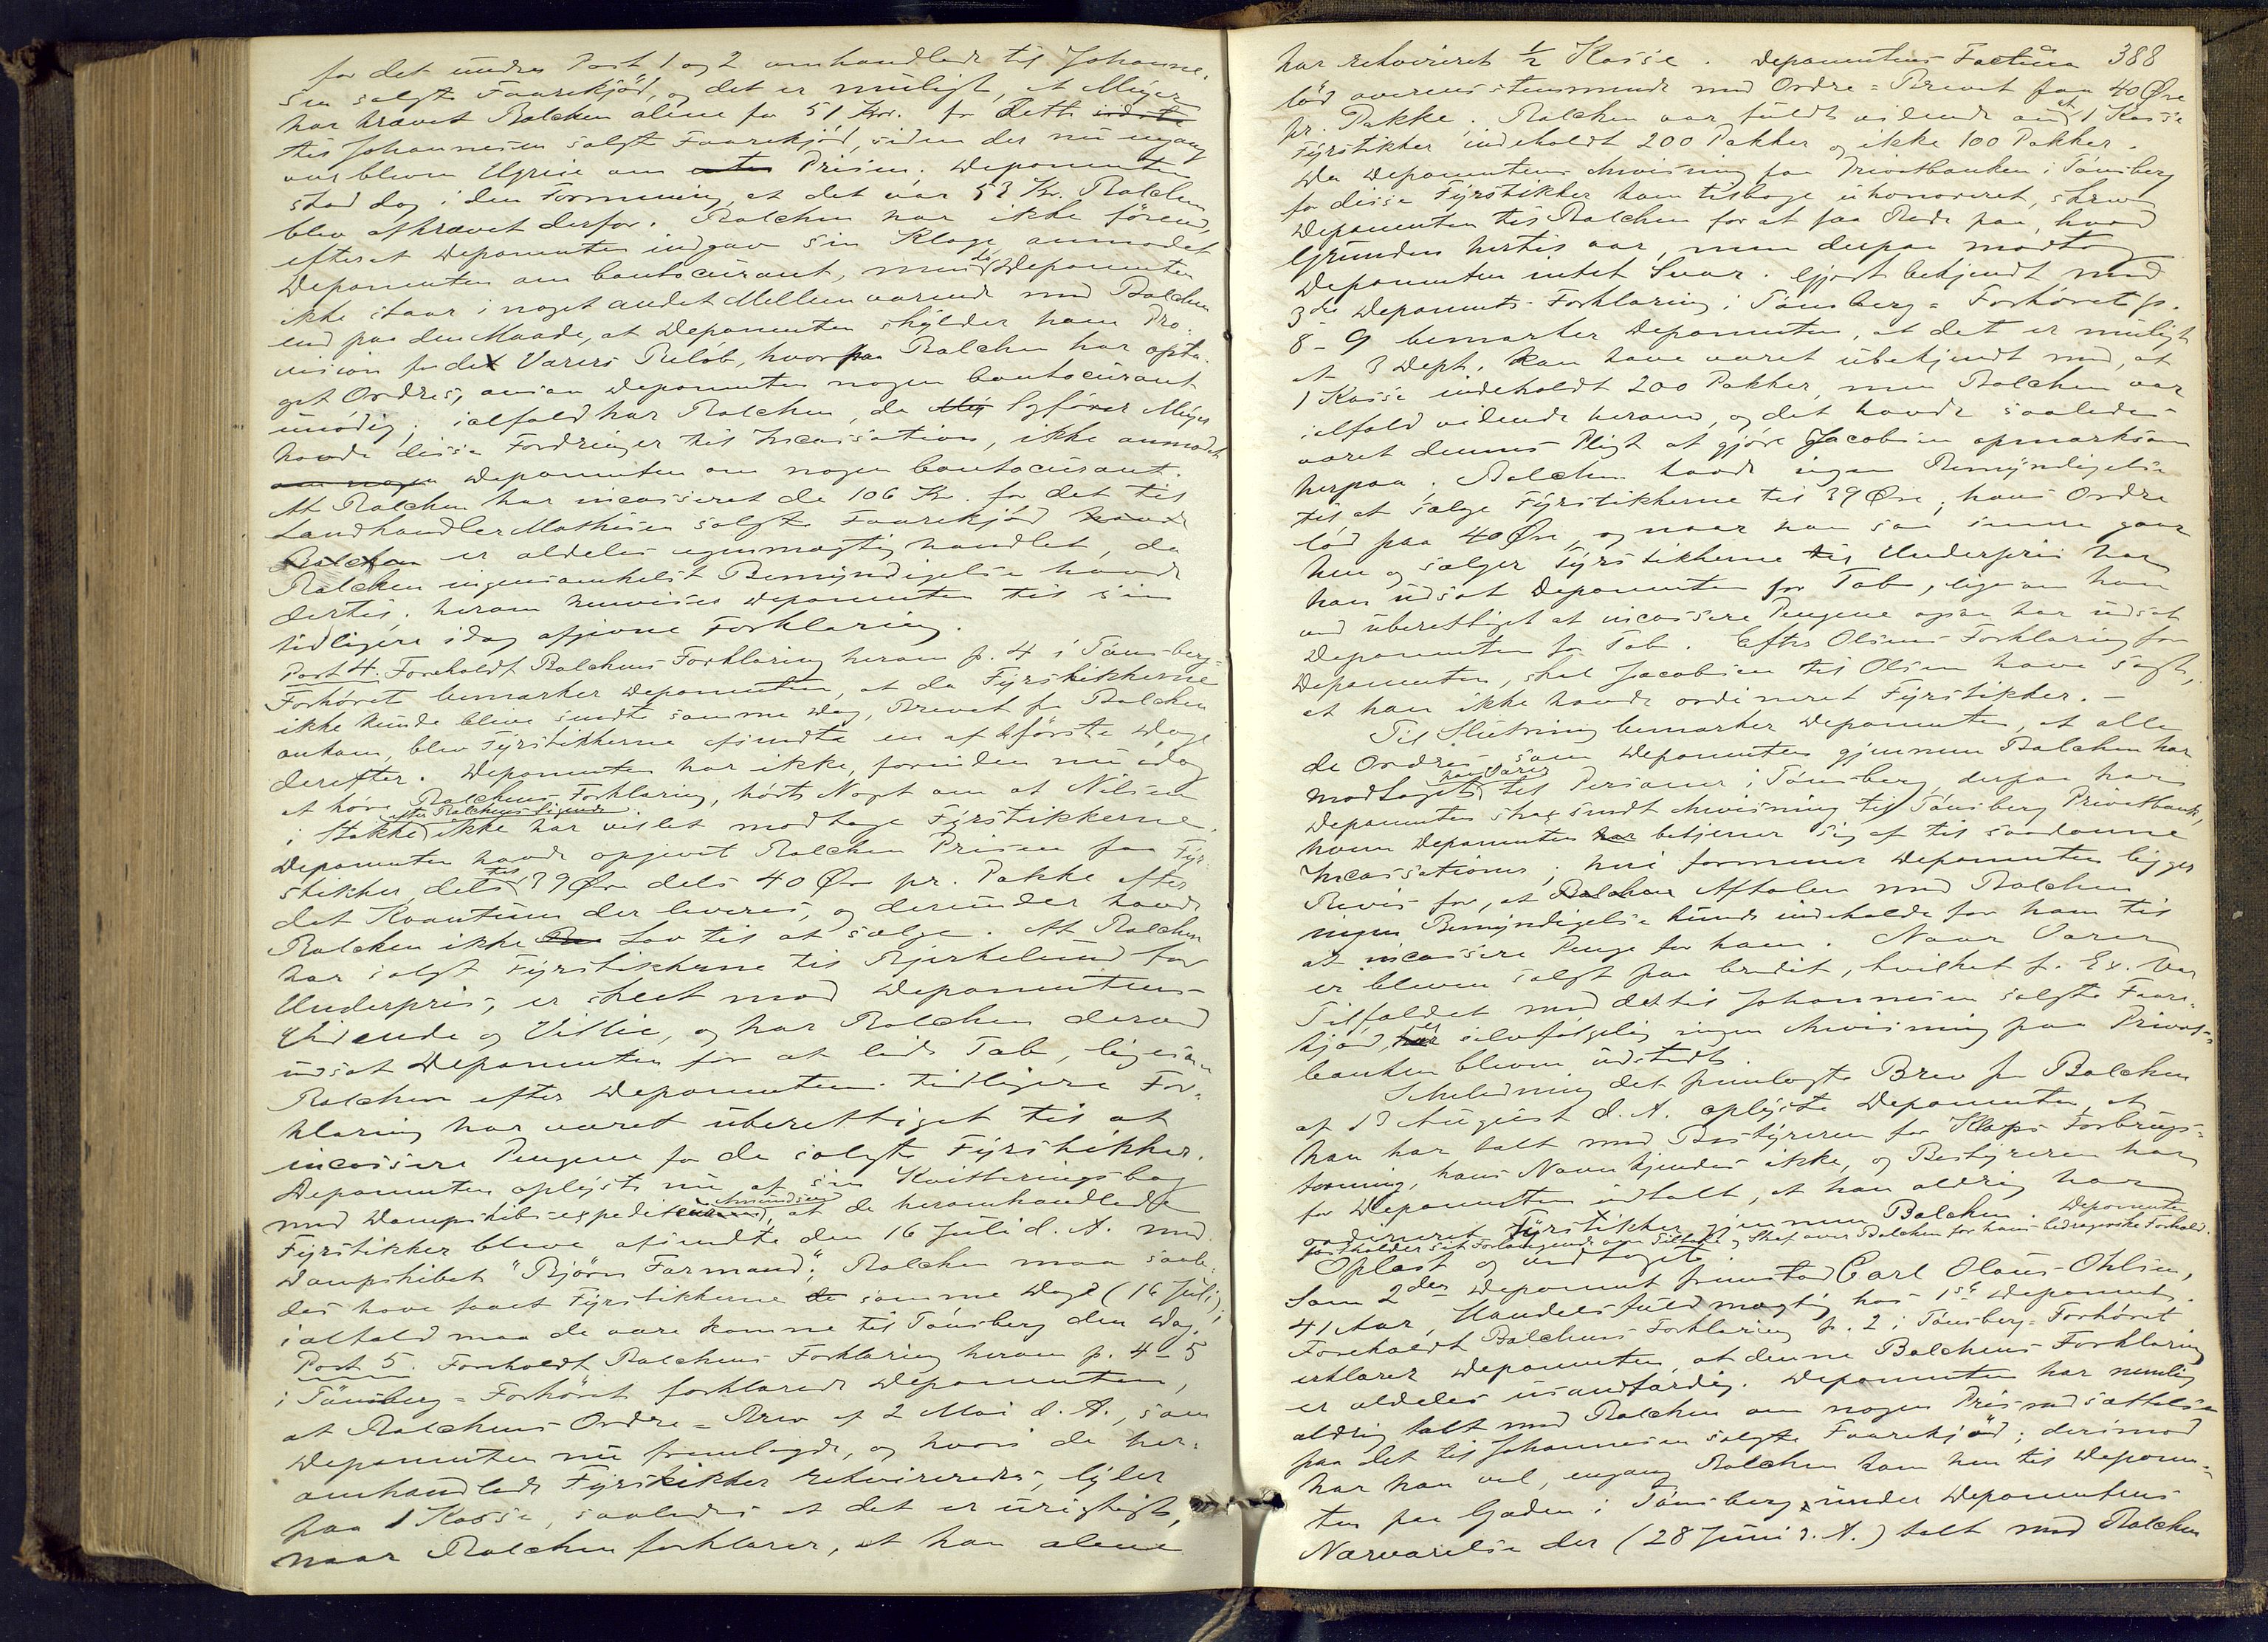 for det under Post 1 og 2 omhandlede til Johanne-
sen solgte Faarekjød, og det er muligt, at Meyer
har krævet Balchen alene for 51 Kr. for dette sidste
til Johannesen solgte Faarekjød, siden der nu engang
var bleven Ugreie om Prisen. Deponenten
stod dog i den Formening, at det var 53 Kr. Balchen
blev afkrævet derfor. Balchen har ikke førend,
efterat Deponenten indgav sin Klage, anmodet
Deponenten om Contocurant, men da Deponenten
ikke staar i noget andet Mellemværende med Balchen
end paa den Maade, at Deponenten skylder ham Pro-
vision for de Varers Beløb, hvorpaa Balchen har opta-
get Ordres, ansaa Deponenten nogen Contocurant
unødig; ialfald har Balchen, da Sgfører Meyer
havde disse Fordringer til Incassation, ikke anmodet
om nogen Deponenten om nogen Contocurant.
At Balchen har incasseret de 106 Kr. for det til
Landhandler Mathisen solgte Faarekjød havde
Balchen er aldeles egenmægtig handlet, da
Balchen ingensomhelst Bemyndigelse havde
dertil; herom henviser Deponenten til sin
tidligere idag afgivne Forklaring.
Post 4. Foreholdt Balchens Forklaring herom p. 4 i Tønsberg-
Forhøret bemærker Deponenten, at da Fyrstikkerne
ikke kunde blive sendte samme Dag, Brevet fra Balchen
ankom, blev Fyrstikkerne afsendte en af de første Dage
derefter. Deponenten har ikke, forinden nu idag
at høre Balchens Forklaring, hørt Noget om at Nilsen
i Stokke efter Balchens Sigende ikke har villet modtage Fyrstikkerne.
Deponenten havde opgivet Balchen Prisen for Fyr-
stikker dels til 39 Øre dels 40 Øre pr. Pakke efter
det Kvantum der leveres, og derunder havde
Balchen ikke Lov til at sælge. At Balchen
har solgt Fyrstikkerne til Bjerkelund for
Underpris, er skeet mod Deponentens
Vidende og Villie, og har Balchen derved
udsat Deponenten for at lide Tab, ligesom
Balchen efter Deponentens tidligere For-
klaring har været uberettiget til at
incassere Pengene for de solgte Fyrstikker.
Deponenten oplyste nu af sin Kvitteringsbog
med Dampskibsexpediteur Amundsen, at de heromhandlede
Fyrstikker bleve afsendte den 16 Juli d. A. med
Dampskibet "Bjørn Farmand"; Balchen maa saale-
des have faaet Fyrstikkerne samme Dag (16 Juli);
ialfald maa de være komne til Tønsberg den Dag.
Post 5. Foreholdt Balchens Forklaring herom p. 4-5
i Tønsberg-Forhøret forklarede Deponenten,
at Balchens Ordre-Brev af 2 Mai d. A., som
Deponenten nu fremlagde, og hvori de her-
omhandlede Fyrstikker rekvireredes, lyder
paa 1 Kasse, saaledes at det er urigtigt,
naar Balchen forklarer, at han alene
388
har rekvireret ½ Kasse. Deponentens Factura
lød overensstemmende med Ordre-Brevet paa 40 Øre
pr. Pakke. Balchen var fuldt vidende om at 1 Kasse
Fyrstikker indeholdt 200 Pakker og ikke 100 Pakker.
Da Deponentens Anvisning paa Privatbanken i Tønsberg
for disse Fyrstikker kom tilbage uhonoreret, skrev
Deponenten til Balchen for at faa Rede paa, hvad
Grunden hertil var, men derpaa modtog
Deponenten intet Svar. Gjort bekjendt med
3die Deponents Forklaring i Tønsberg-Forhøret p.
8-9 bemærker Deponenten, at det er muligt
at 3 Dept. kan have været ubekjendt med, at
1 Kasse indeholdt 200 Pakker, men Balchen var
ialfald vidende herom, og det havde saaledes
været dennes Pligt at gjøre Jacobsen opmærksom
herpaa. Balchen havde ingen Bemyndigelse
til at sælge Fyrstikkerne til 39 Øre; hans Ordre
lød paa 40 Øre, og naar han saa senere gaar
hen og sælger Fyrstikkerne til Underpris har
han udsat Deponenten for Tab, ligesom han
ved uberettiget at incassere Pengene ogsaa har udsat
Deponenten for Tab. Efter Olsens Forklaring for
Deponenten, skal Jacobsen til Olsen have sagt,
at han ikke havde ordineret Fyrstikker. –
Til Slutning bemærker Deponenten, at alle
de Ordres som Deponenten gjennem Balchen har
modtaget paa Varer til Personer i Tønsberg, derpaa har
Deponenten strax sendt Anvisning til Tønsberg Privatbank,
hvem Deponenten har betjener sig af til saadanne
Incassationer; heri formener Deponenten ligger
Bevis for, at Balchens Aftalen med Balchen
ingen Bemyndigelse kunde indeholde for ham til
at incassere Penge for ham. Naar Varer
er bleven solgt paa Credit, hvilket f. Ex. var
Tilfældet med det til Johannesen solgte Faare-
kjød, er selvfølgelig ingen Anvisning paa Privat-
banken bleven udstedt.
I Anledning det fremlagte Brev fra Balchen
af 13 August d. A. oplyste Deponenten, at
han har talt med Bestyreren for Klops Forbrugs-
forening, hans Navn kjendes ikke, og Bestyreren har
for Deponenten udtalt, at han aldrig har
ordineret Fyrstikker gjennem Balchen. Deponenten
fastholder sit Forlangende om Tiltale og Straf over Balchen for hans bedragerske Forhold.
Oplæst og vedtaget.
Som 2den Deponent fremstod Carl Olaus Ohlsen,
41 Aar, Handelsfuldmægtig hos 1ste Deponent.
Foreholdt Balchens Forklaring p. 2 i Tønsberg-Forhøret
erklærer Deponenten, at denne Balchens Forklaring
er aldeles usandfærdig. Deponenten har nemlig
aldrig talt med Balchen om nogen Prisnedsættelse
paa det til Johannesen solgte Faarekjød; derimod
har han vel, engang Balchen kom hen til Deponen-
ten paa Gaden i Tønsberg, under Deponentens
Nærværelse der (28 Juni d. A.) talt med Balchen